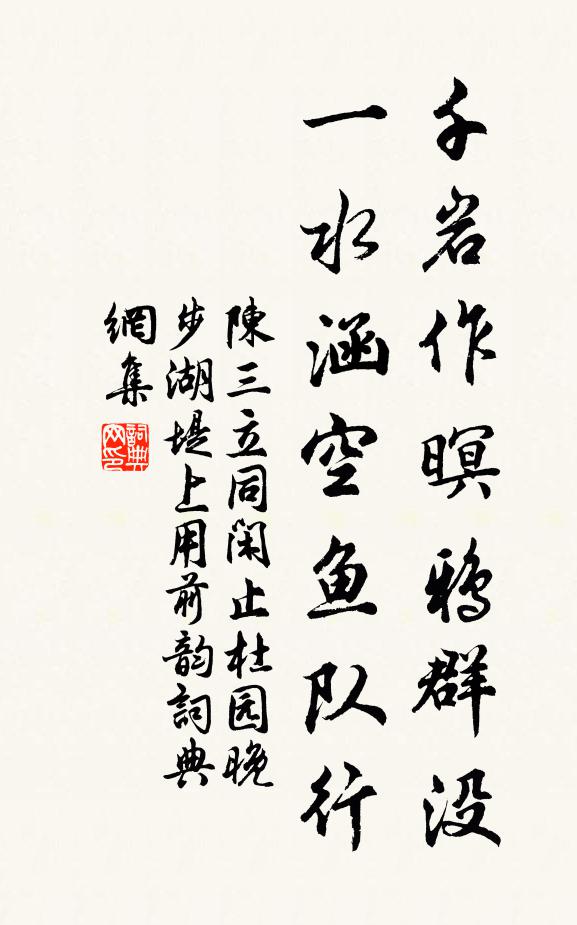 千岩作暝鸦群没
一水涵空鱼队行
陳三立同闲止杜园晚
步湖堤上用前韵詞典
網集
詞典
网印